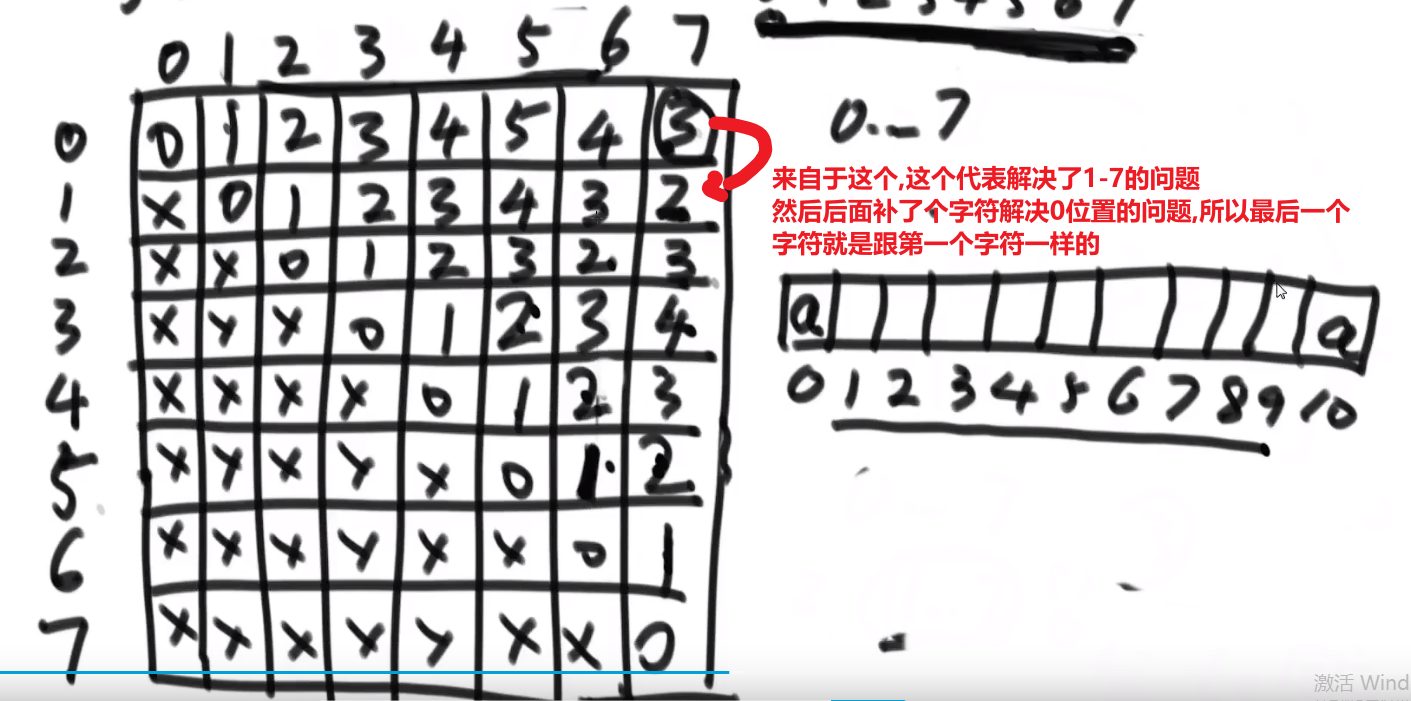 0 1 2 3 4 5 6 7
0 0 1 2 3 4 5 4 3
1 x 0 1 2 3 4 3 2
2 x x 0 1 2 3 2 3
3 x x x 0 1 2 3 4
4 x x x x 0 1 2 3
5 x x x x x 0 1 2
6 x x x x x x 0 1
7 x x x x x x x 0
0...7
来自于这个,这个代表解决了1-7的问题
然后后面补了个字符解决0位置的问题,所以最后一个
字符就是跟第一个字符一样的
a a
0 1 2 3 4 5 6 7 8 9 10
激活 Wind